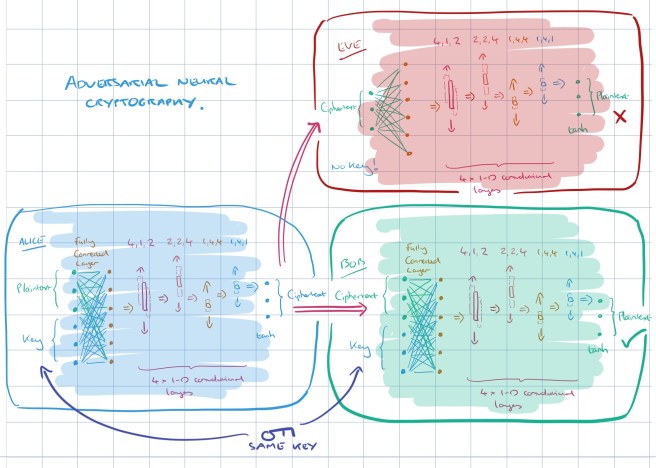 ADVERSARIAL NEURAL
CRYPTOGRAPHY.
EVE
4,1,2 2,2,4 1,4,4 1,4,1
Ciphertext
Plaintext
X
tanh
No Key!
4 x 1-D convolutional
layers
ALICE
Fully
Connected
Layer
4,1,2 2,2,4 1,4,4 1,4,1
Plaintext
Key
Ciphertext
tanh
4 x 1-D convolutional
layers
BOB
Fully
Connected
Layer
4,1,2 2,2,4 1,4,4 1,4,1
Ciphertext
Key
Plaintext
tanh
4 x 1-D convolutional
layers
SAME KEY